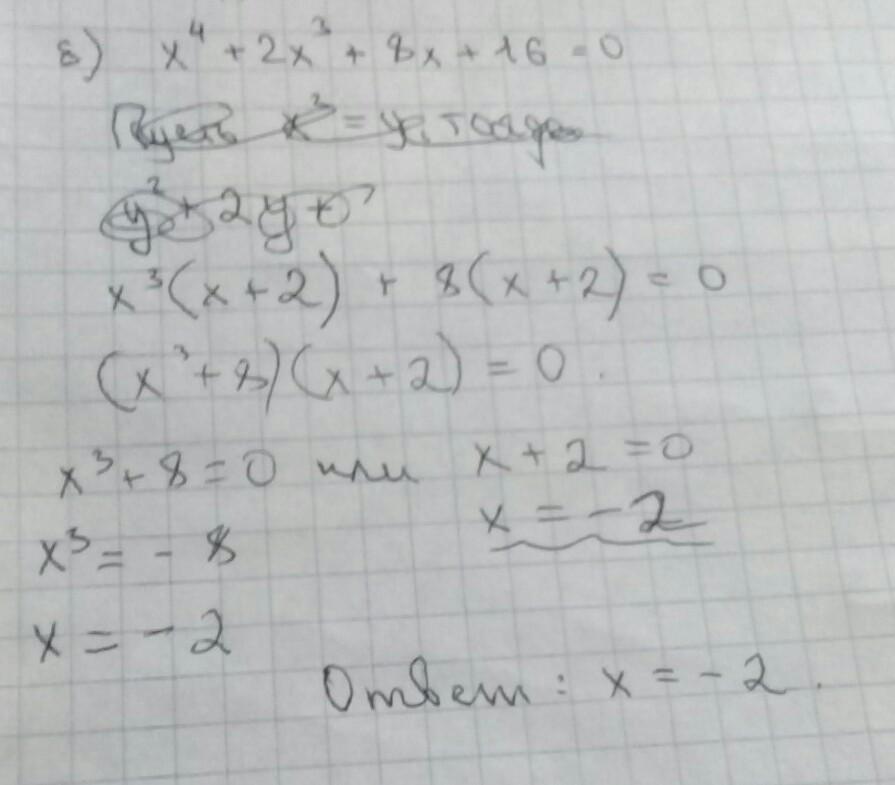 б) x⁴ + 2x³ + 8x + 16 = 0
Пусть x² = y, тогда
y² + 2y +
x³(x + 2) + 8(x + 2) = 0
(x³ + 8)(x + 2) = 0.
x³ + 8 = 0 или x + 2 = 0
x = -2
x³ = -8
x = -2
Ответ: x = -2.